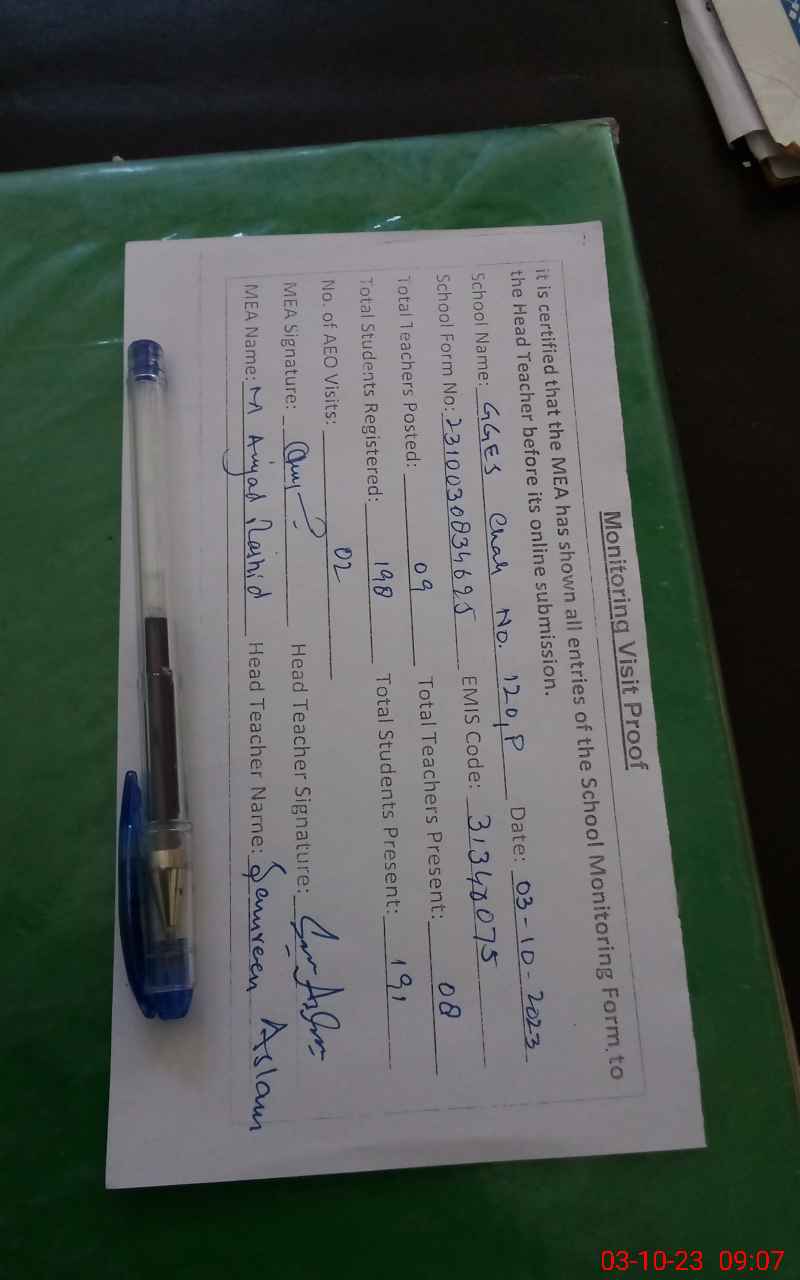 Monitoring Visit Proof
it is certified that the MEA has shown all entries of the School Monitoring Form to
the Head Teacher before its online submission.
School Name: GGES Chak No. 120,P Date: 03-10-2023
School Form No: 2310030834695 EMIS Code: 31340075
Total Teachers Posted: 09 Total Teachers Present: 08
Total Students Registered: 198 Total Students Present: 191
No. of AEO Visits: 02
MEA Signature: Head Teacher Signature:
MEA Name: M Amjad Rashid Head Teacher Name: Samreen Aslam
03-10-23 09:07